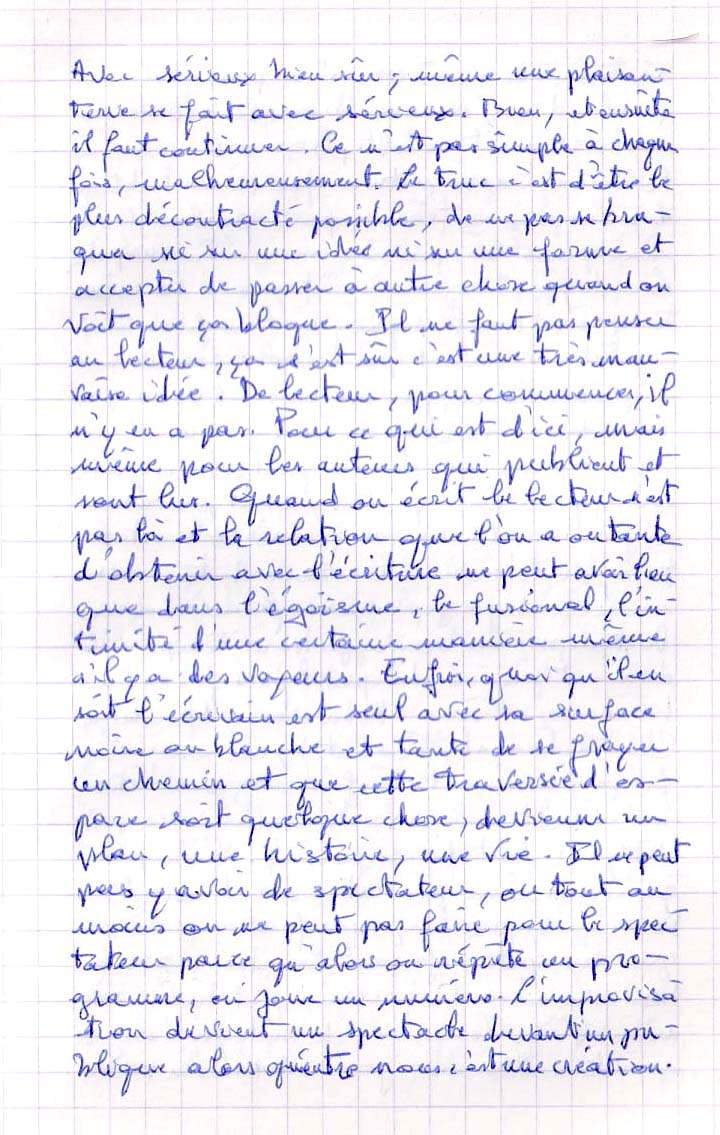 Avec sérieux bien sûr ; même une plaisan-
terie se fait avec sérieux. Bien, et ensuite
il faut continuer. Ce n'est pas simple à chaque
fois, malheureusement. Le truc c'est d'être le
plus décontracté possible, de ne pas se bra-
quer ni sur une idée ni sur une forme et
accepter de passer à autre chose quand on
voit que ça bloque. Il ne faut pas penser
au lecteur, ça c'est sûr c'est une très mau-
vaise idée. De lecteur, pour commencer, il
n'y en a pas. Pour ce qui est d'ici, mais
même pour les auteurs qui publient et
sont lus. Quand on écrit le lecteur n'est
pas là et la relation que l'on a ou tente
d'obtenir avec l'écriture ne peut avoir lieu
que dans l'égoïsme, le fusionnel, l'in-
timité d'une certaine manière même
s'il y a des voyeurs. Enfin, quoi qu'il en
soit l'écrivain est seul avec sa surface
noire ou blanche et tente de se frayer
un chemin et que cette traversée d'es-
pace soit quelque chose, devienne un
plan, une histoire, une vie. Il ne peut
pas y avoir de spectateur, ou tout au
moins on ne peut pas faire pour le spec-
tateur parce qu'alors on répète un pro-
gramme, on joue un numéro. L'improvisa
-tion devient un spectacle devant un pu-
blique alors qu'entre nous c'est une création.